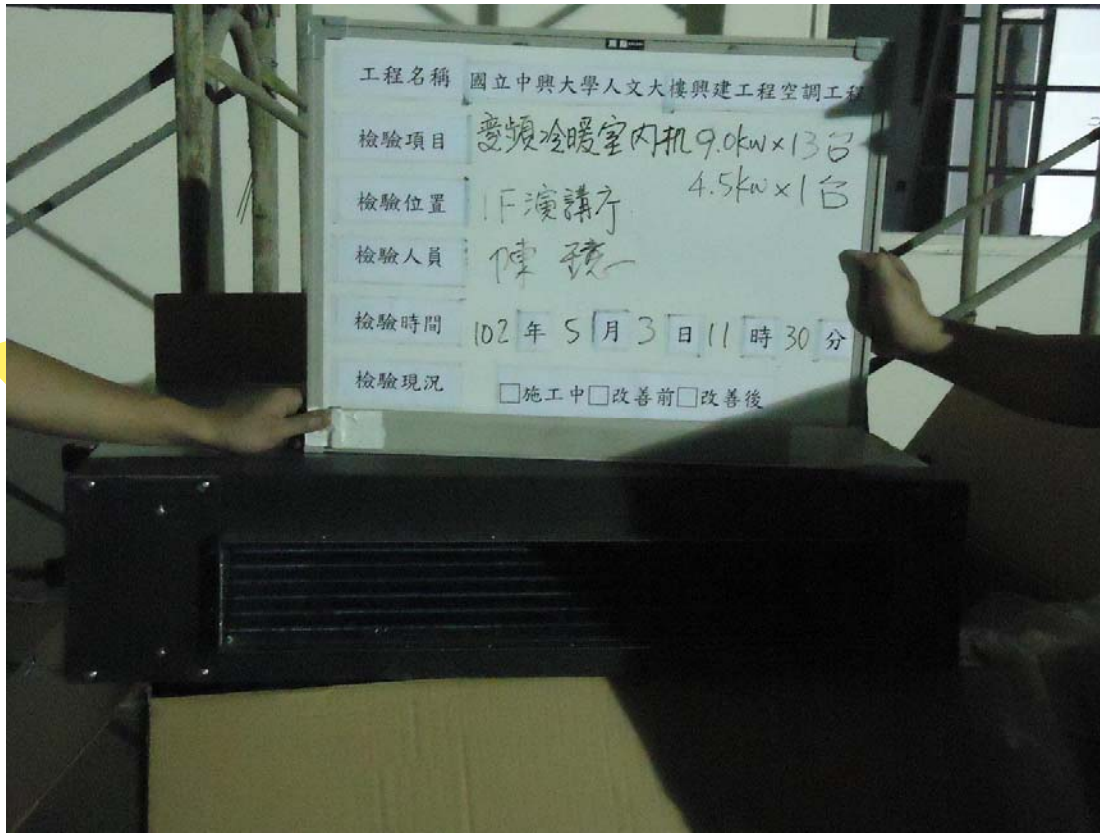 工程名稱 國立中興大學人文大樓興建工程空調工程
檢驗項目 變頻冷暖室内机 9.0kw×13台
4.5kw×1台
檢驗位置 1F演講庁
檢驗人員 陳
檢驗時間 102年5月3日11時30分
檢驗現況 □施工中□改善前□改善後